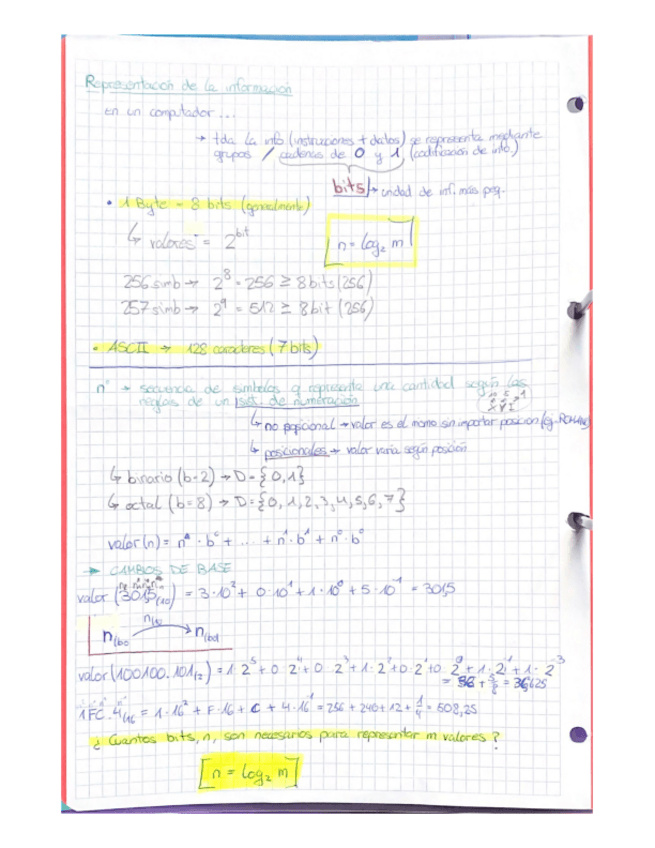 Representación de la información
en un computador...
→ tda la info (instrucciones + datos) se representa mediante
grupos / cadenas de 0 y 1 (codificación de info)
bits → unidad de inf. más peq.
• 1 Byte = 8 bits (generalmente)
↳ valores = 2^bit
n = log₂ m
256 simb → 2⁸ = 256 ≥ 8bits (256)
257 simb → 2⁹ = 512 ≥ 8bit (256)
• ASCII → 128 caracteres (7 bits)
nº → secuencia de símbolos q representa una cantidad según las
reglas de un sist. de numeración
↳ no posicional → valor es el mismo sin importar posición (ej. ROMANO)
↳ posicionales → valor varía según posición
↳ binario (b=2) → D={0,1}
↳ octal (b=8) → D={0, 1, 2, 3, 4, 5, 6, 7}
→ CAMBIOS DE BASE
valor (301,5₍₁₀₎) = 3·10² + 0·10¹ + 1·10⁰ + 5·10⁻¹ = 301,5
valor (100100.101₍₂₎) = 1·2⁵ + 0·2⁴ + 0·2³ + 1·2² + 0·2¹ + 0·2⁰ + 1·2⁻¹ + 1·2⁻³
= 36 + 5/8 = 36,625
1FC.4₍₁₆ = 1·16² + F·16 + C + 4·16⁻¹ = 256 + 240 + 12 + 1/4 = 508,25
¿Cuantos bits, n, son necesarios para representar m valores?
n = log₂ m